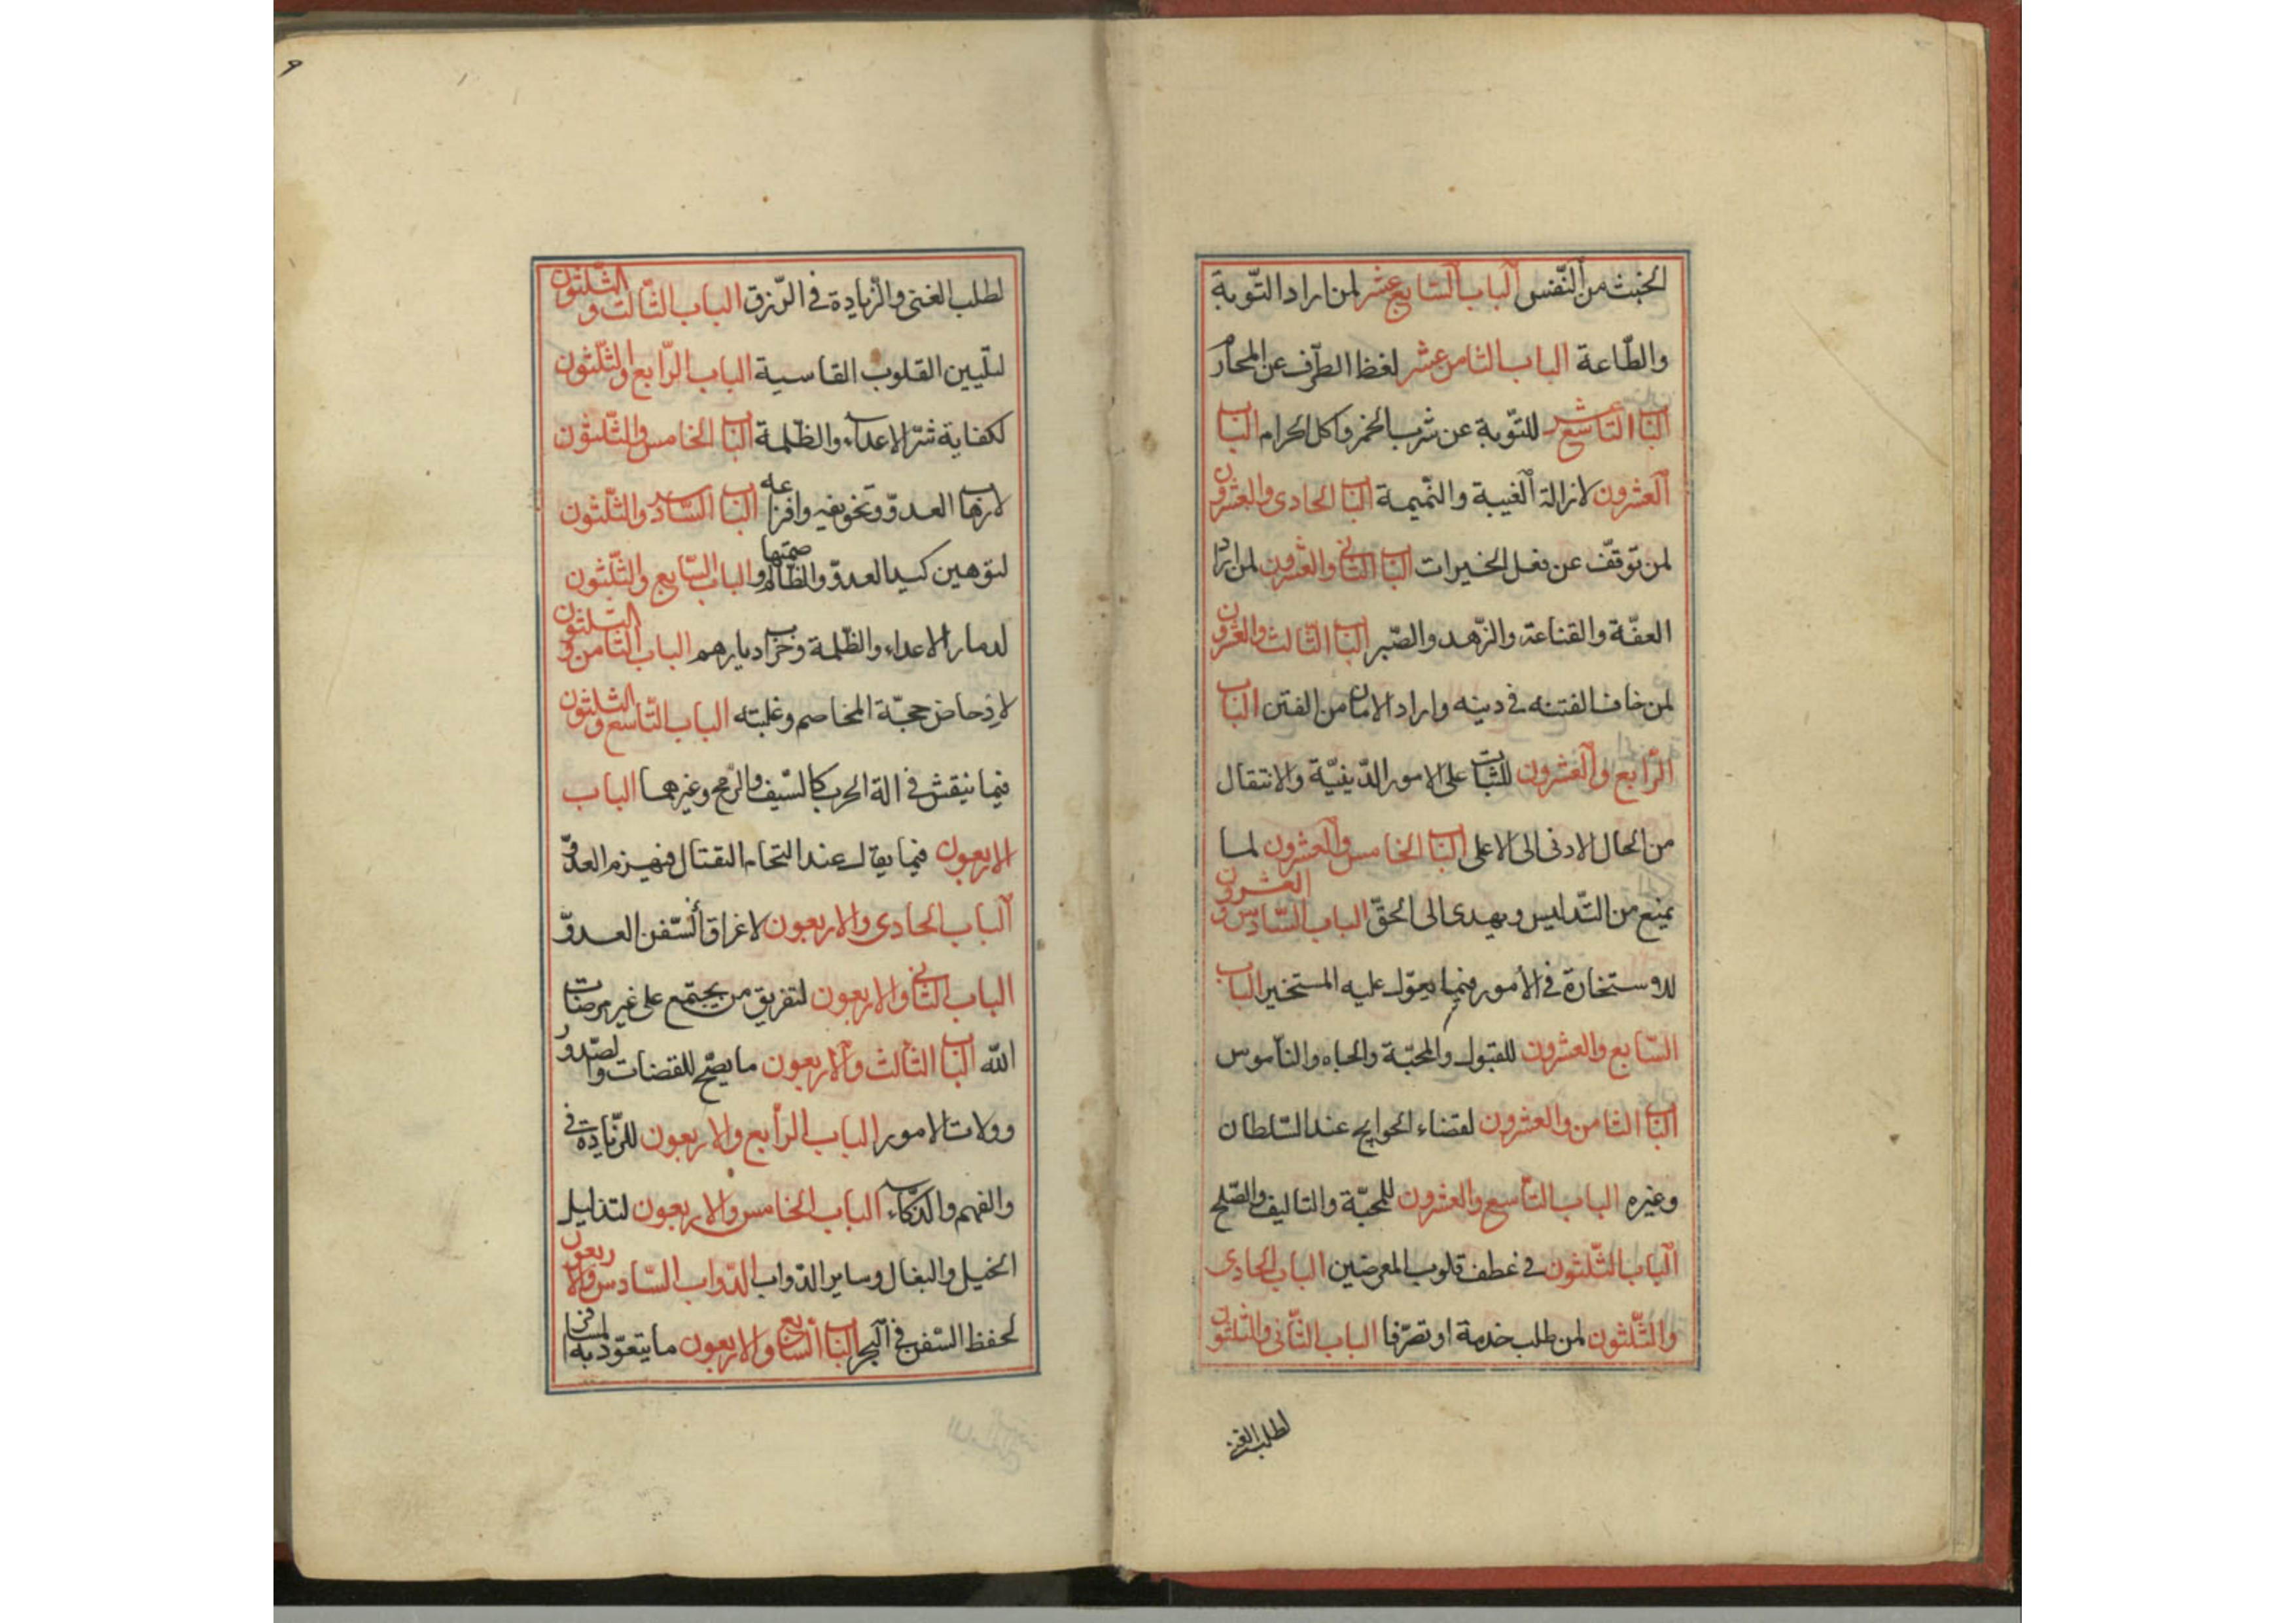 الخبث من النّفس الباب السّابع عشر لمن اراد التّوبة
والطّاعة الباب الثامن عشر لغظ الطّرف عن المحارم
الباب التاسع عشر للتّوبة عن شرب الخمر واكل الحرام الباب
العشرون لازالة الغيبة والنّميمة الباب الحادى والعشرون
لمن توقّف عن فعل الخيرات الباب الثانى والعشرون لمن اراد
العفّة والقناعة والزّهد والصّبر الباب الثالث والعشرون
لمن خاف الفتنه فى دينه واراد الامان من الفتن الباب
الرابع والعشرون للثبات على الامور الدّينيّة والانتقال
من الحال الادنى الى الاعلى الباب الخامس والعشرون لما
يمنع من التّدليس ويهدى الى الحقّ الباب السّادس والعشرون
للاستخارة فى الأمور فيما يعوّل عليه المستخير الباب
السّابع والعشرون للقبول والمحبّة والجاه والنّاموس
الباب الثامن والعشرون لقضاء الحوايج عند السّلطان
وغيره الباب التّاسع والعشرون للمحبّة والتاليف والصّلح
الباب الثّلثون فى عطف قلوب المعرضين الباب الحادى
والثّلثون لمن طلب خدمة او تصرّفا الباب الثّانى والثلثون
لطلب الغنى
لطلب الغنى والزّيادة فى الرّزق الباب الثّالث والثّلثون
لتليين القلوب القاسية الباب الرّابع والثّلثون
لكفاية شرّ الاعداء والظّلمة الباب الخامس والثّلثون
لارهاب العدوّ وتخويفه وافزاعه الباب السّادس والثّلثون
لتوهين كيد العدوّ والظّالم الباب السّابع والثّلثون
لدمار الاعداء والظّلمة وخراب ديارهم الباب الثّامن والثّلثون
لادحاض حجّة المخاصم وغلبته الباب التّاسع والثلثون
فيما ينقش فى الة الحرب كالسّيف والرّمح وغيرهما الباب
الاربعون فيما يقال عند التحام القتال فيهزم العدوّ
الباب الحادى والاربعون لاغراق السّفن العدوّ
الباب الثانى والاربعون لتفريق من يجتمع على غير مرضات
الله الباب الثّالث والاربعون ما يصحّ للقضات والصّدور
وولات الامور الباب الرّابع والاربعون للزّيادة فى
والفهم والذكاء الباب الخامس والاربعون لتذليل
الخيل والبغال وساير الدّواب الدّواب السّادس والاربعون
لحفظ السّفن فى البحر الباب السّابع والاربعون ما يتعوّد به المسافر